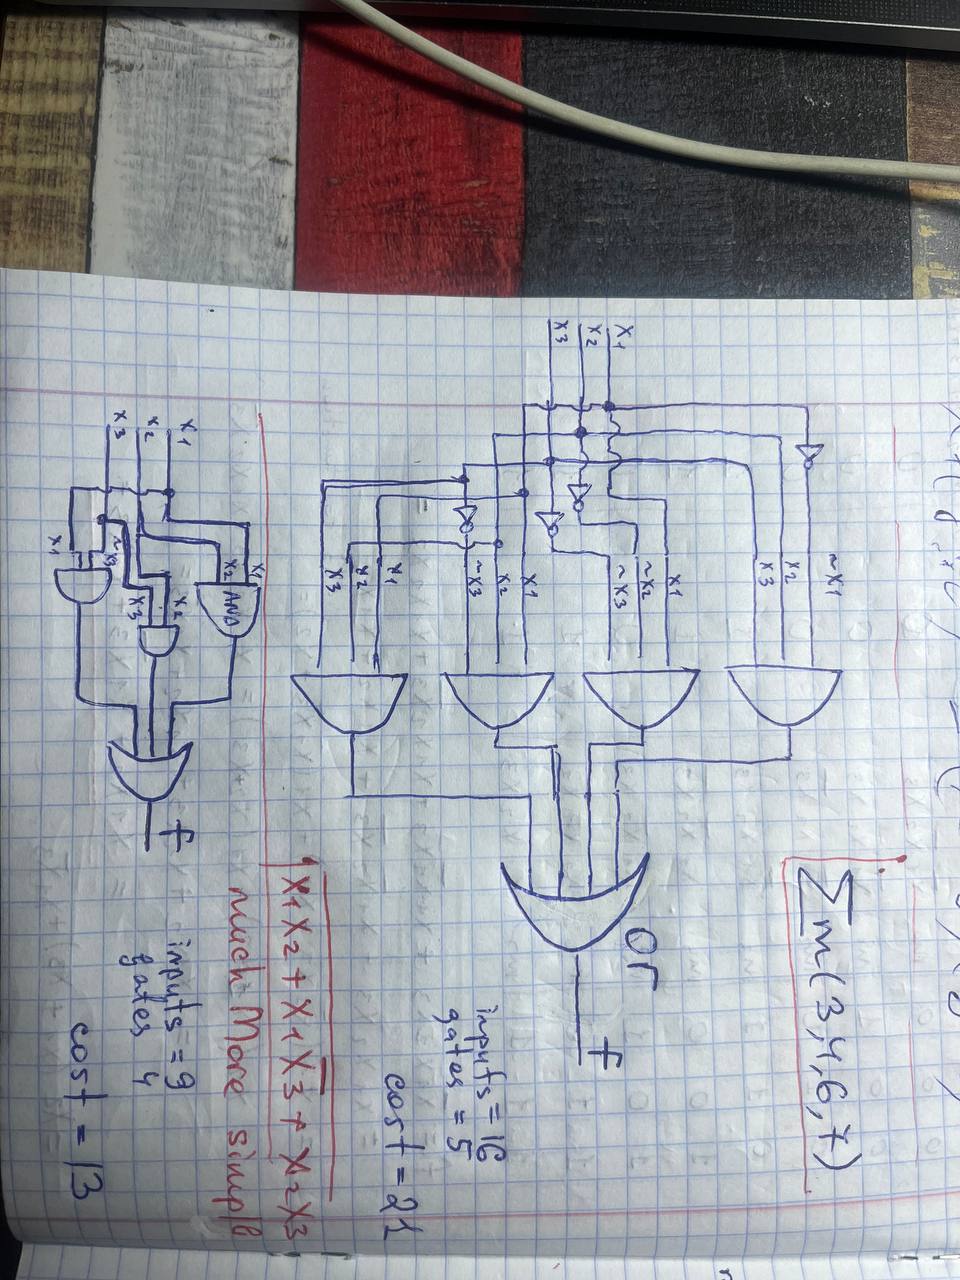 ∑m(3,4,6,7)
x1
x2
x3
~x1
x2
x3
x1
~x2
~x3
x1
x2
~x3
x1
x2
x3
or
f
inputs = 16
gates = 5
cost = 21
x1x2 + x1x̅3 + x2x3
much More simple
x1
x2
x3
x1
x2
AND
x2
x3
~x3
x1
f
inputs = 9
gates 4
cost = 13